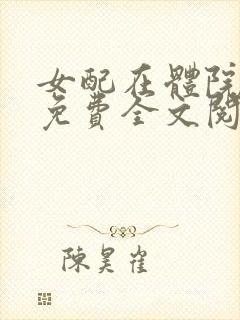 女配在體院
免費全文閱
陳昊雀